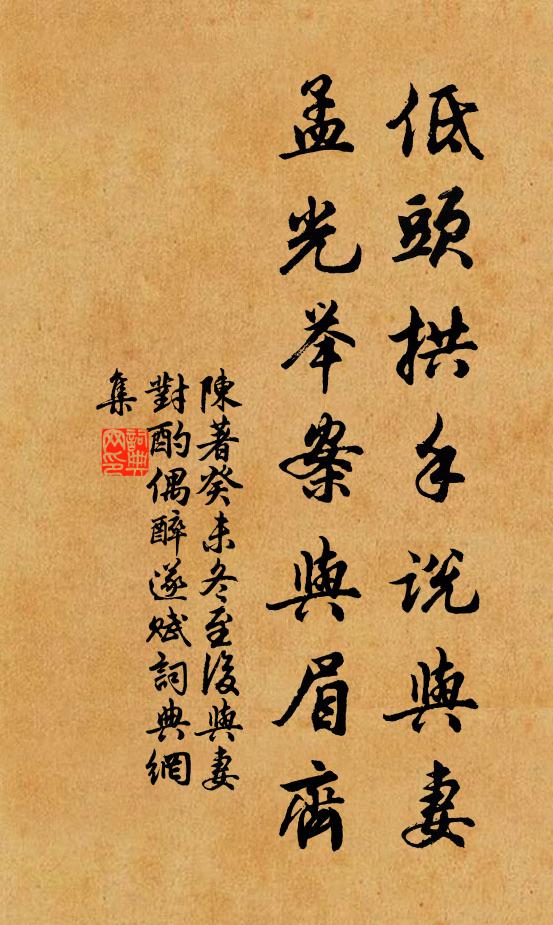 低頭拱手説與妻
孟光举案與眉齊
陳著癸未冬至後與妻
對酌偶醉遂賦詞典網
集
詞典
网印